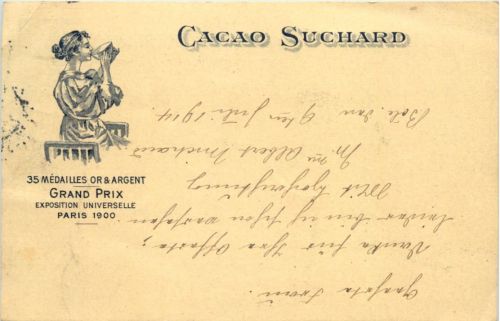 CACAO SUCHARD
35 MÉDAILLES OR & ARGENT
GRAND PRIX
EXPOSITION UNIVERSELLE
PARIS 1900
Geehrte Frau.
Danke für Ihre Offerte,
leider bin ich schon versehen
Mit Hochachtung
Mme Albert Michaud
den 9ten Juli 1914.